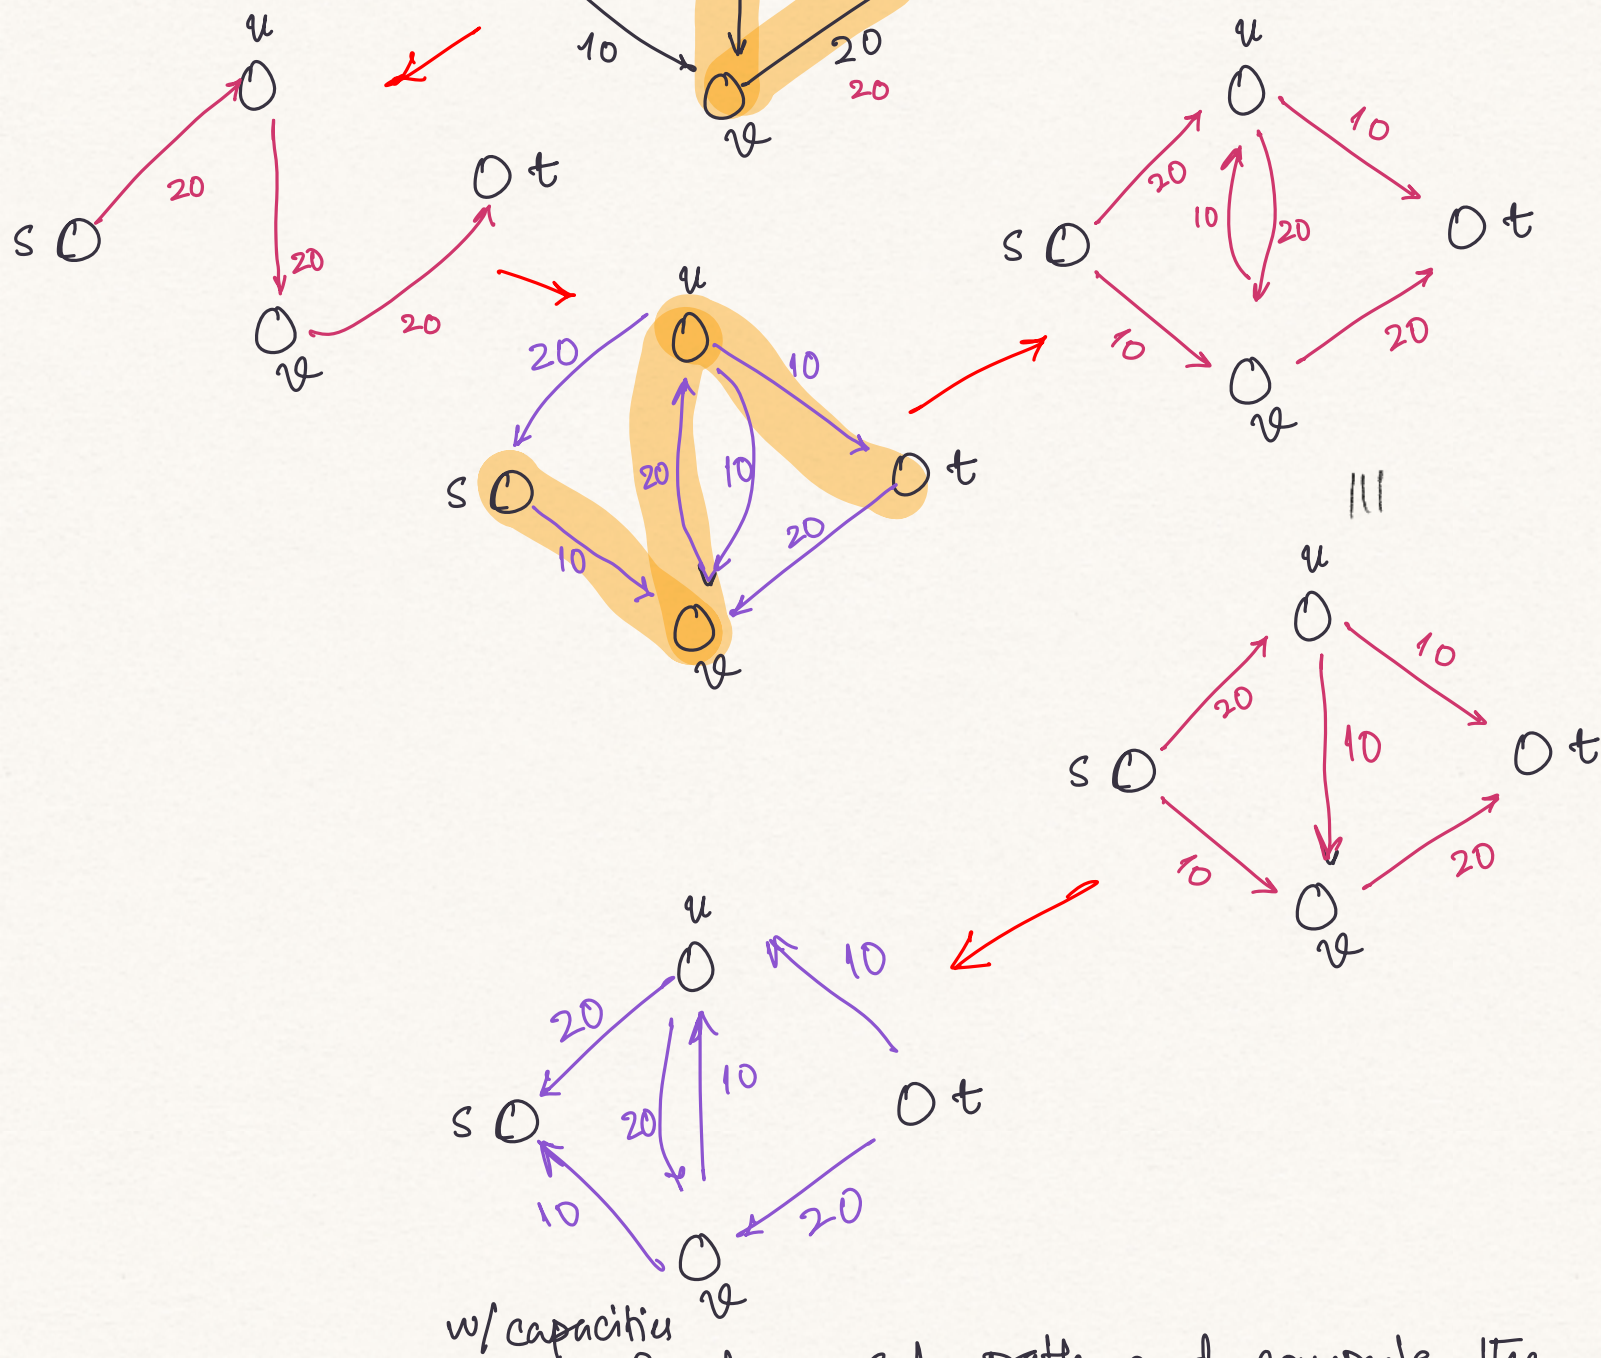 u
10
20
20
v
u
20
s
20
t
20
v
u
10
20
10
20
s
t
10
20
v
u
20
10
s
20
10
t
10
20
v
|||
u
10
20
10
s
t
10
20
v
u
10
20
10
20
s
t
10
20
v
w/ capacities